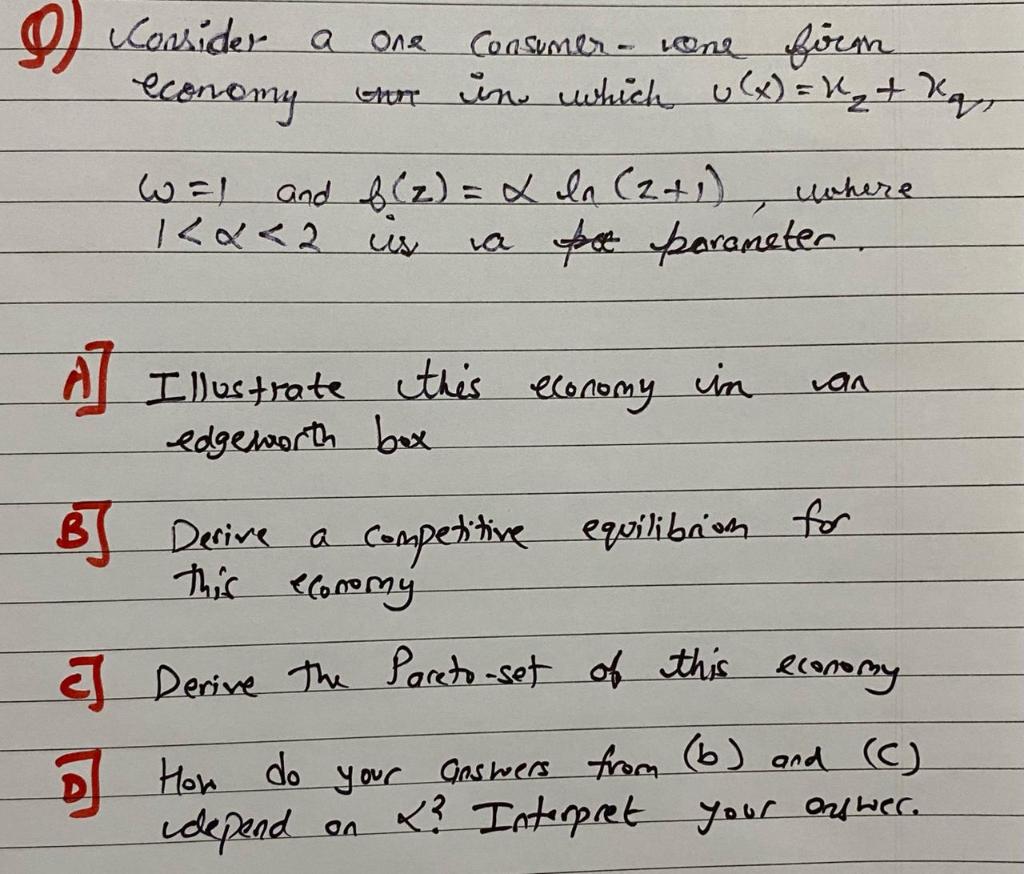 Q) Consider a one consumer - one firm
economy in which u(x) = x₂ + x_q,
ω = 1 and f(z) = α ln (z+1), where
1 < α < 2 is a parameter.
A] Illustrate this economy in an
edgeworth box
B] Derive a competitive equilibriom for
this economy
C] Derive the Pareto-set of this economy
D] How do your answers from (b) and (C)
depend on α? Interpret your answer.